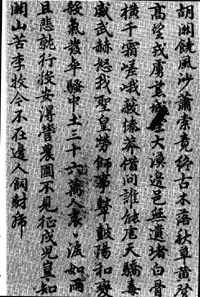 胡關饒風沙蕭索竟終古木落秋草黃登
高望戎虜荒城大漠邊邑無遺堵白骨
橫千霜嵯峨蔽榛莽借問誰陵虐天驕毒
威武赫怒我聖皇勞師事鼙鼓陽和變
殺氣發卒騷中土三十六萬人哀〻淚如雨
且悲就行役安得營農圃不見征戍兒豈知
關山苦李牧今不在邊人飼豺虎